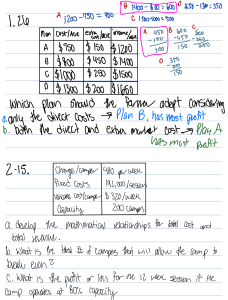 1.26
A 1200-750 = 450
B 1400-800 = 600
C 1500-1000 = 500
D 1650-1300 = 350
A 450
-150
300
B 600
-450
150
C 500
-250
250
D 350
-200
150
Plan Cost/ave extra cost/ave income/ave
A $750 $150 $1200
B $800 $450 $1400
C $1000 $250 $1500
D $1300 $200 $1650
Which plan should the farmer adopt considering
a. only the direct costs → Plan B, has most profit
b. both the direct and extra market cost → Plan A
has most profit
2-15.
Charge/camper $480 per week
Fixed costs
Variable cost/camper $320/week
Capacity 200 campers
a. develop the mathematical relationships for total cost and
total revenue.
b. What is the total # of campers that will allow the camp to
break even?
c. What is the profit or loss for the 12 week session if the
camp operates at 80% capacity